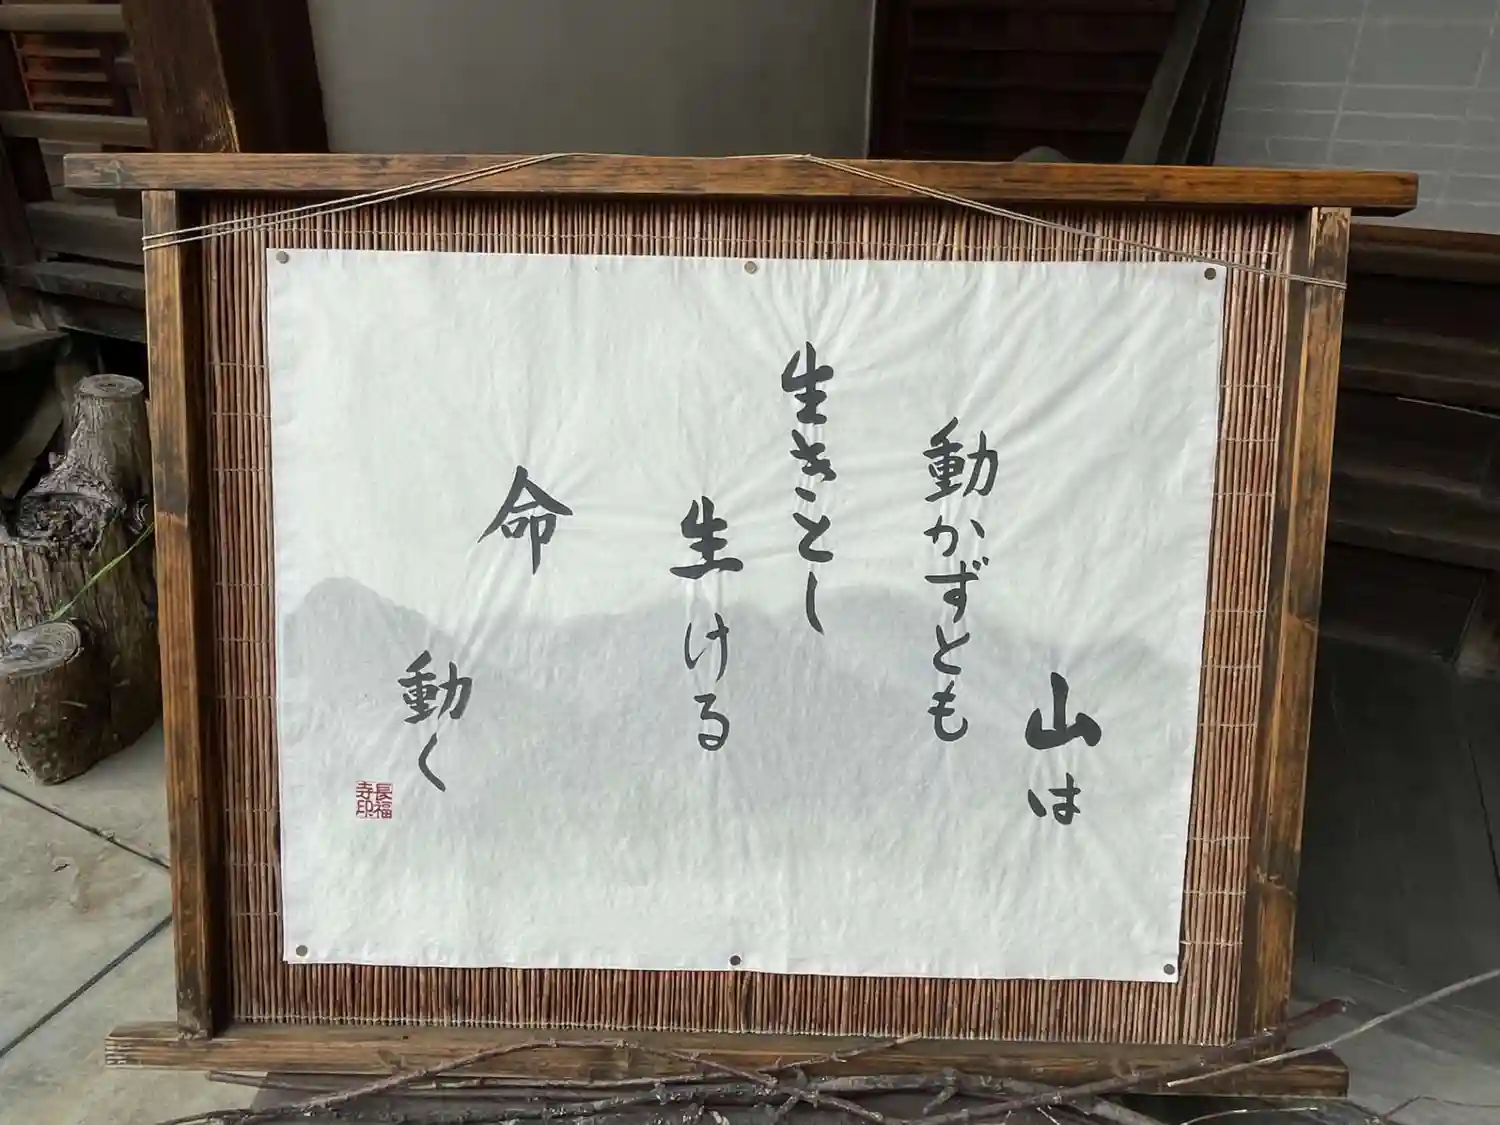 山は
動かずとも
生きとし
生ける
命
動く
長福
寺印